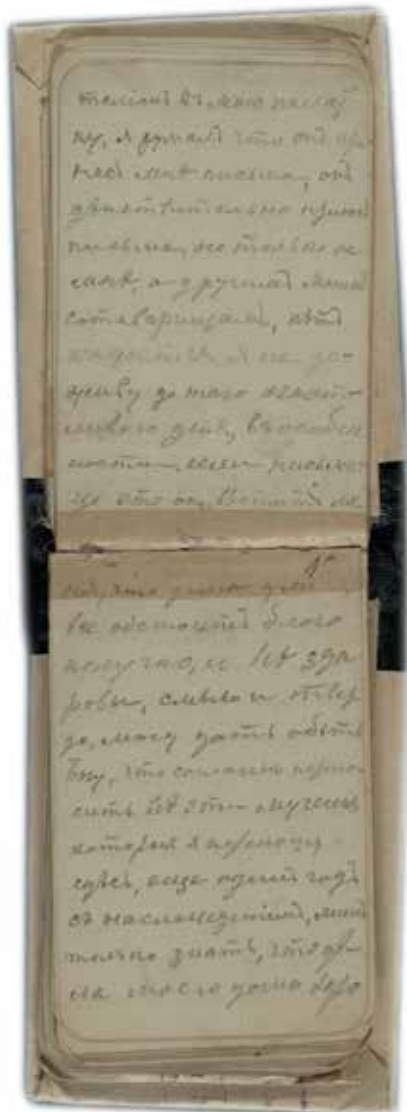 въ мою палат
ну, я думалъ что онъ при
несъ мнѣ письма, онъ
дѣйствительно принесъ
письма, но только не
а другимъ моимъ
сотоварищамъ, нѣтъ
я не до-
живу до того счаст-
ливаго дня, въ особен
ности если
что
что у меня дома
все обстоитъ благо
получно, и всѣ здо
ровы, смѣло и твер
до, могу дать обѣтъ
Богу, что согласенъ перено
сить всѣ эти мученья
которыя я переношу
здѣсь, еще одинъ годъ
съ наслажденіемъ,
только знать, что дѣ-
ла моего дома хоро